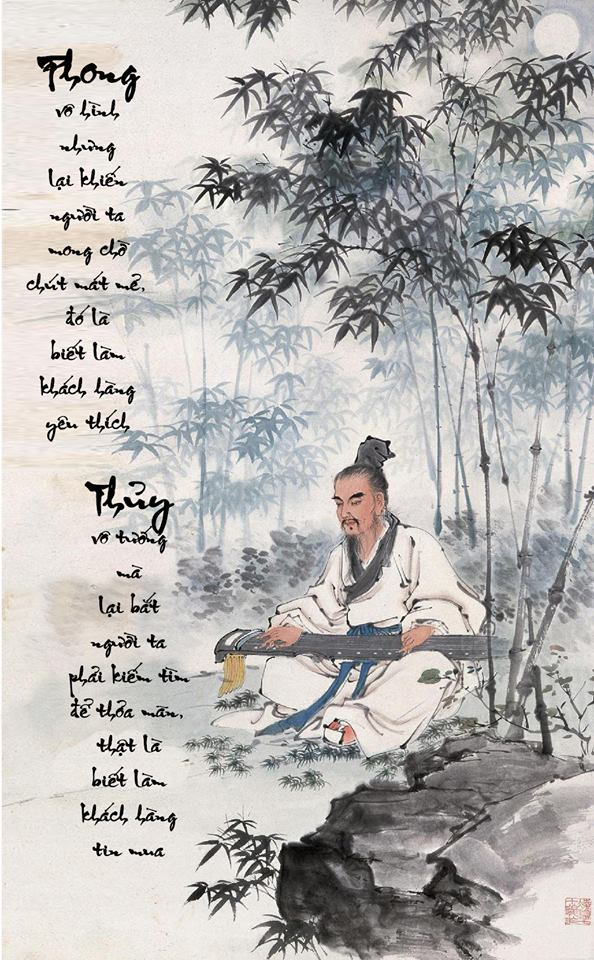 Phong
vô hình
nhưng
lại khiến
người ta
mong chờ
chút mát mẻ,
đó là
biết làm
khách hàng
yêu thích
Thủy
vô tướng
mà
lại bắt
người ta
phải kiếm tìm
để thỏa mãn,
thật là
biết làm
khách hàng
tin mua